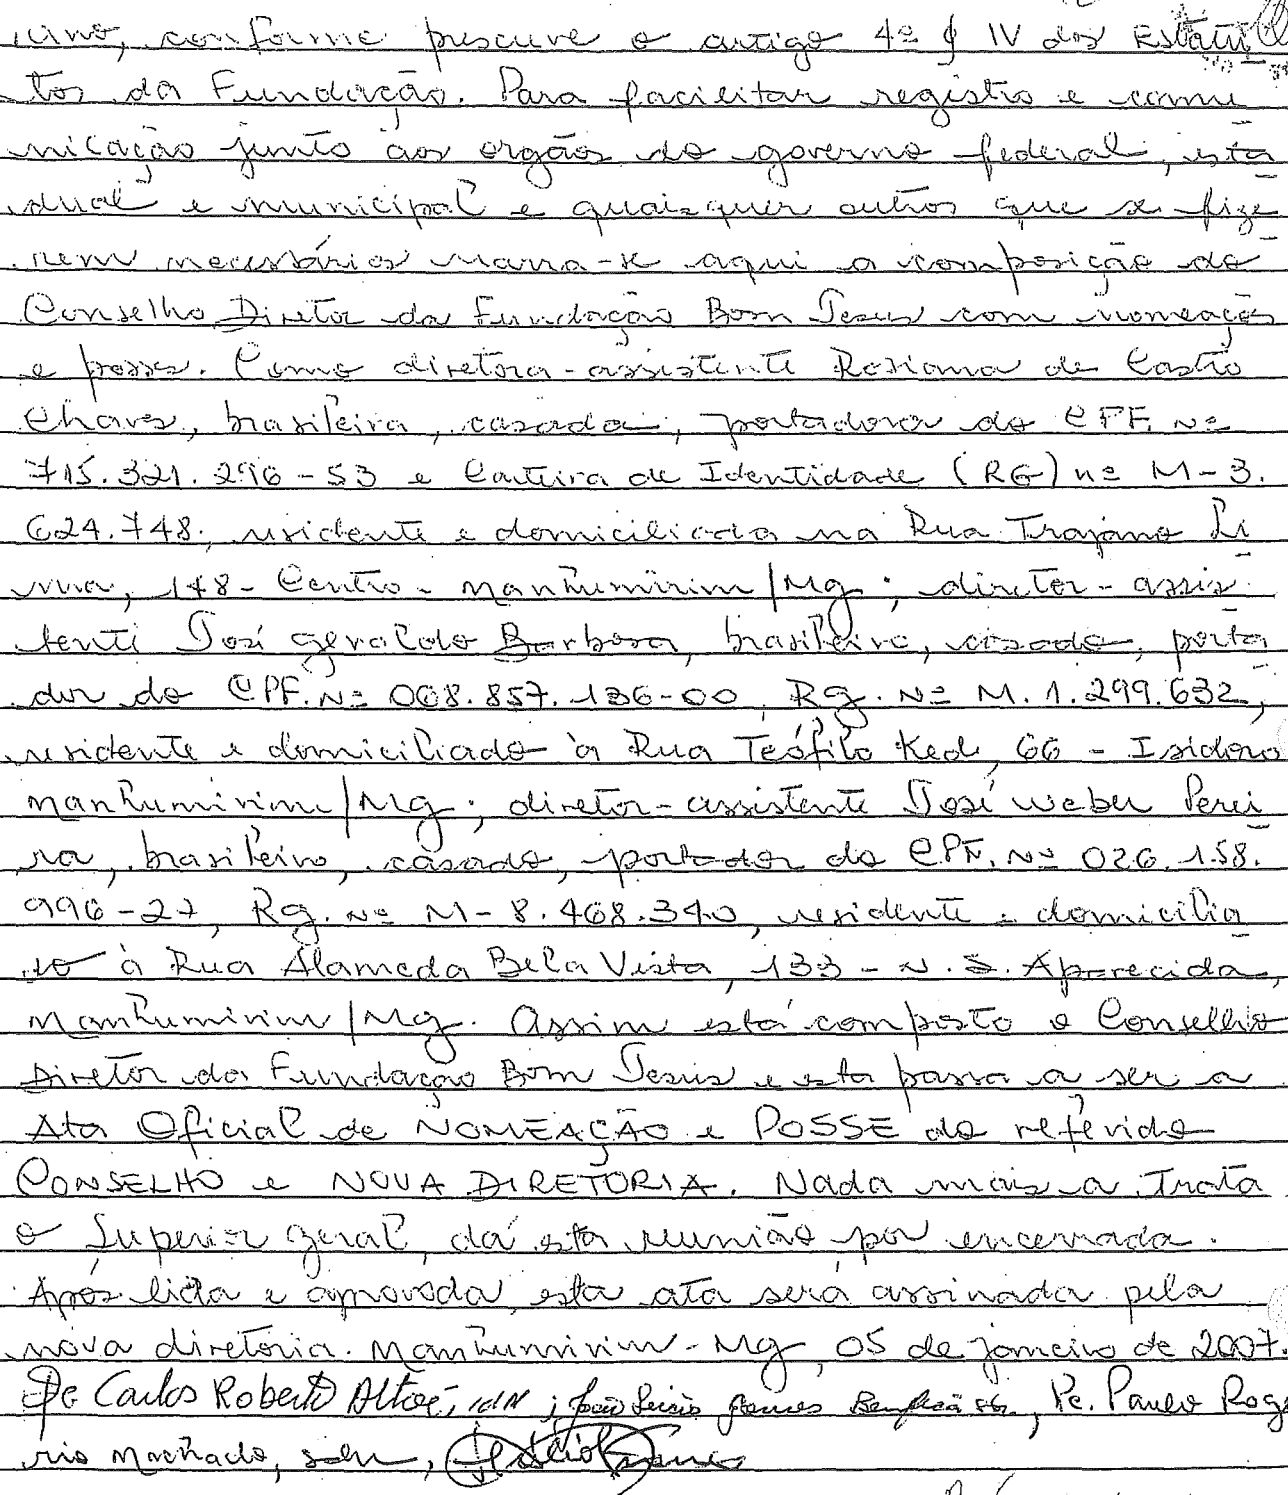 cino, conforme prescreve o artigo 4º § IV dos Estatu
tos da Fundação. Para facilitar registro e comu
nicação junto aos orgãos do governo federal, esta
dual e municipal e quaisquer outros que se fize
rem necessários narra-se aqui a composição do
Conselho Diretor da Fundação Bom Jesus com nomeações
e posse. Como diretora-assistente Rosiana de Castro
Chaves, brasileira, casada, portadora do CPF. Nº
715.321.296-53 e Carteira de Identidade (RG) nº M-3.
624.748, residente e domiciliada na Rua Trajano Li
ma, 148- Centro - Manhumirim/Mg; diretor-assis
tente José geraldo Barbosa, brasileiro, casado, porta
dor do CPF. Nº 068.857.136-00, Rg. Nº M.1.299.632,
residente e domiciliado à Rua Teófilo Ked, 66 - Isidoro
Manhumirim/Mg; diretor-assistente José Weber Perei
ra, brasileiro, casado, portador do CPF. Nº 026.158.
996-27, Rg. nº M-8.468.340, residente e domicilia
do à Rua Alameda Bela Vista, 133 - N. S. Aparecida,
Manhumirim/Mg. Assim está composto o Conselho
Diretor da Fundação Bom Jesus e esta passa a ser a
Ata Oficial de NOMEAÇÃO e POSSE do referido
CONSELHO e NOVA DIRETORIA. Nada mais a Trata
o Superior geral, dá esta reunião por encerrada.
Após lida e aprovada, esta ata será assinada pela
nova diretoria. Manhumirim-Mg, 05 de janeiro de 2007.
Pe Carlos Roberto Altoé, sdn; João Lúcio Gomes Benfica sdn, Pe. Paulo Rogé
rio Machado, sdn,